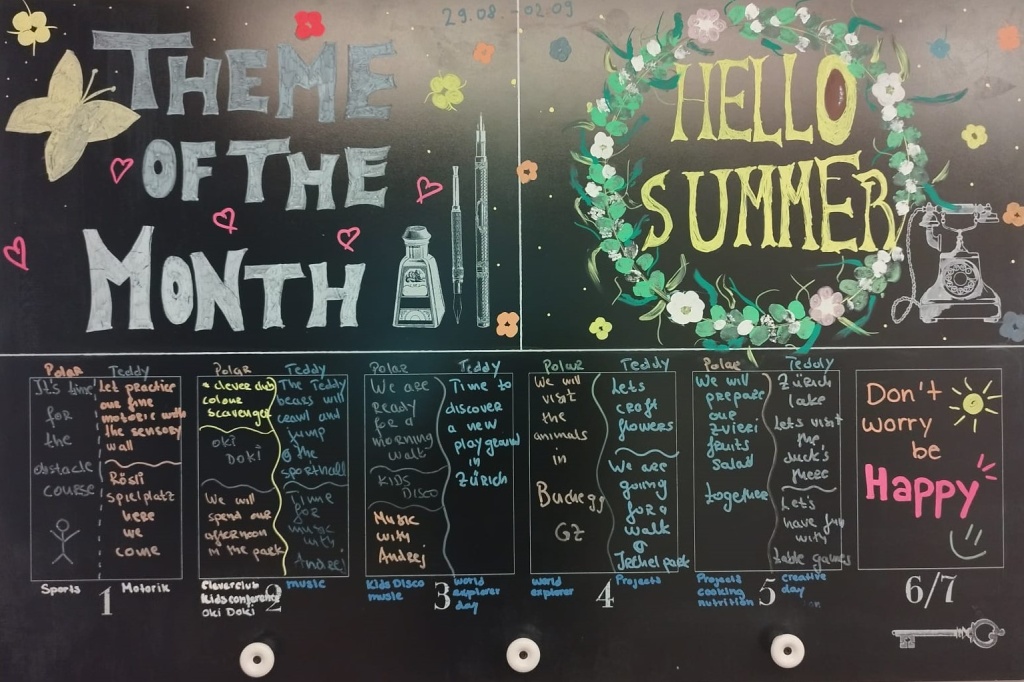 29.08. - 02.09
THEME
OF THE
MONTH
HELLO
SUMMER
Polar
It's time
for
the
obstacle
course
Teddy
Let practice
our fine
motoric with
the sensory
wall
Rösli
spielplatz
here
we
come
Sports
1
Motorik
Polar
clever club
colour
scavenger
Oki
Doki
We will
spend our
afternoon
in the park
Teddy
The Teddy
bears will
crawl and
jump
@ the
sporthall
time
for
music
with
Andrej
Cleverclub
Kids conference
Oki Doki
2
music
Polar
We are
ready
for a
morning
walk
KIDS
DISCO
Music
with
Andrej
Teddy
Time to
discover
a new
playground
in
Zürich
Kids Disco
music
3
world
explorer
day
Polar
We will
visit
the
animals
in
Buchegg
GZ
Teddy
Lets
craft
flowers
We are
going
for a
walk
@
Irchel park
world
explorer
4
Projects
Polar
We will
prepare
our
zvieri
fruits
salad
together
Teddy
Zürich
lake
Lets visit
the
duck's
here
Let's
have fun
with
table games
Projects
cooking
nutrition
5
creative
day
Don't
worry
be
Happy
6/7